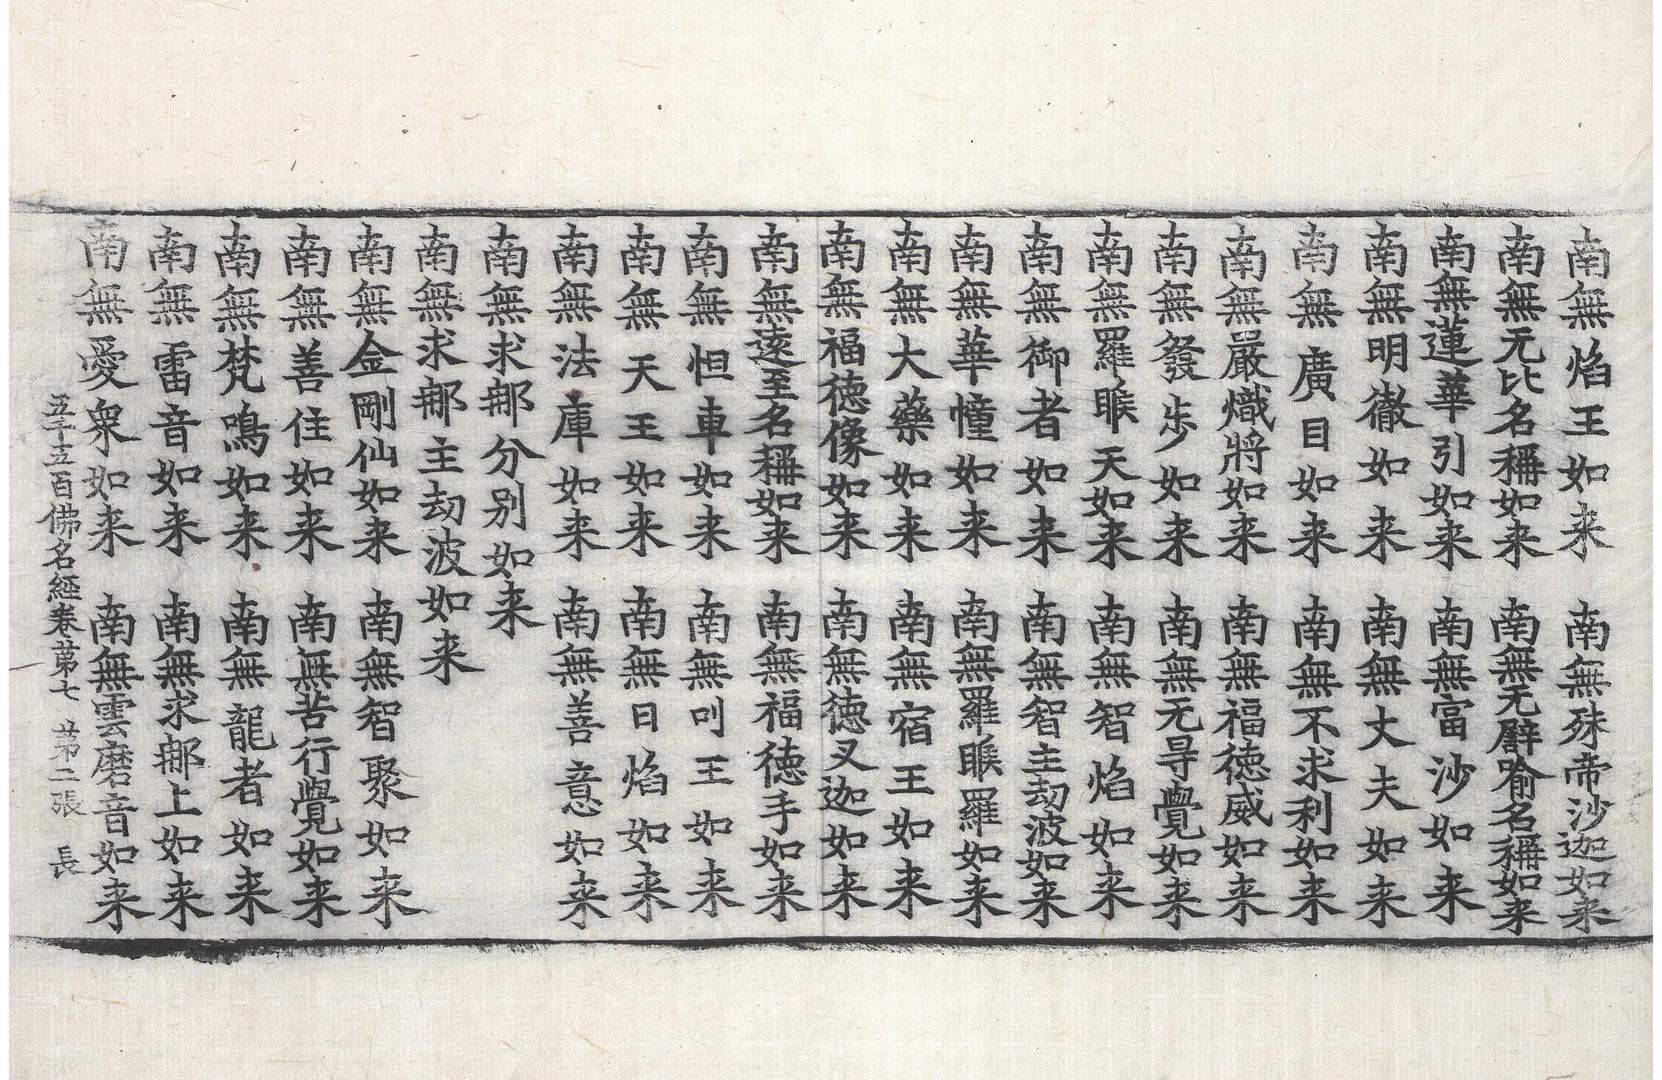 南無焰王如来 南無殊帝沙迦如来
南無无比名稱如来 南無无譬喻名稱如来
南無蓮華引如来 南無富沙如来
南無明徹如来 南無大夫如来
南無廣目如来 南無不求利如来
南無嚴熾將如来 南無福德威如来
南無發步如来 南無无㝵覺如来
南無羅睺天如来 南無智焰如来
南無御者如来 南無智主劫波如来
南無華幢如来 南無羅睺羅如来
南無大藥如来 南無宿王如来
南無福德像如来 南無德叉迦如来
南無遠至名稱如来 南無福德手如来
南無怛車如来 南無叫王如来
南無天王如来 南無日焰如来
南無法庫如来 南無善意如来
南無求那分别如来
南無求那主劫波如来
南無金剛仙如来 南無智聚如来
南無善住如来 南無苦行覺如来
南無梵鳴如来 南無龍者如来
南無雷音如来 南無求那上如来
南無愛衆如来 南無雲磨音如来
五千五百佛名經卷苐七 苐二張 長